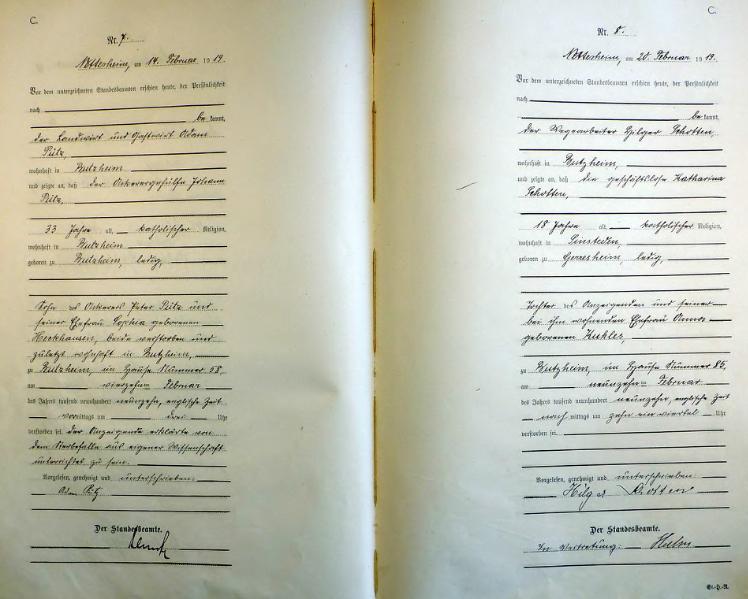 C.
Nr. 7.
Nettesheim, am 14. Februar 1919.
Vor dem unterzeichneten Standesbeamten erschien heute, der Persönlichkeit
nach
be kannt,
der Landwirt und Gastwirt Adam
Pütz,
wohnhaft in Butzheim
und zeigte an, daß der Ackerergehülfe Johann
Pütz,
33 Jahre alt, katholischer Religion,
wohnhaft in Butzheim
geboren zu Butzheim, ledig,
Sohn des Ackerers Peter Pütz und
seiner Ehefrau Sophia geborenen
Heckhausen, beide verstorben und
zuletzt wohnhaft in Butzheim,
zu Butzheim, im Hause Nummer 58,
am vierzehn Februar
des Jahres tausend neunhundert neunzehn, englische Zeit
vormittags um drei Uhr
verstorben sei. der Anzeigende erklärte von
dem Sterbefalle aus eigener Wissenschaft
unterrichtet zu sein.
Vorgelesen, genehmigt und unterschrieben.
Adam Pütz
Der Standesbeamte.
C.
Nr. 8.
Nettesheim, am 20. Februar 1919.
Vor dem unterzeichneten Standesbeamten erschien heute, der Persönlichkeit
nach
be kannt,
der Wegearbeiter Hilger Schotten,
wohnhaft in Butzheim,
und zeigte an, daß die geschäftslose Katharina
Schotten,
18 Jahre alt, katholischer Religion,
wohnhaft in Sinsteden,
geboren zu Gerresheim, ledig,
Tochter des Anzeigenden und seiner
bei ihm wohnenden Ehefrau Anna
geborenen
zu Butzheim, im Hause Nummer 85,
am neunzehn Februar
des Jahres tausend neunhundert neunzehn, englische Zeit
nach mittags um zehn ein viertel Uhr
verstorben sei.
Vorgelesen, genehmigt und unterschrieben.
Hilger Schotten
Der Standesbeamte.
In Vertretung: Hahn